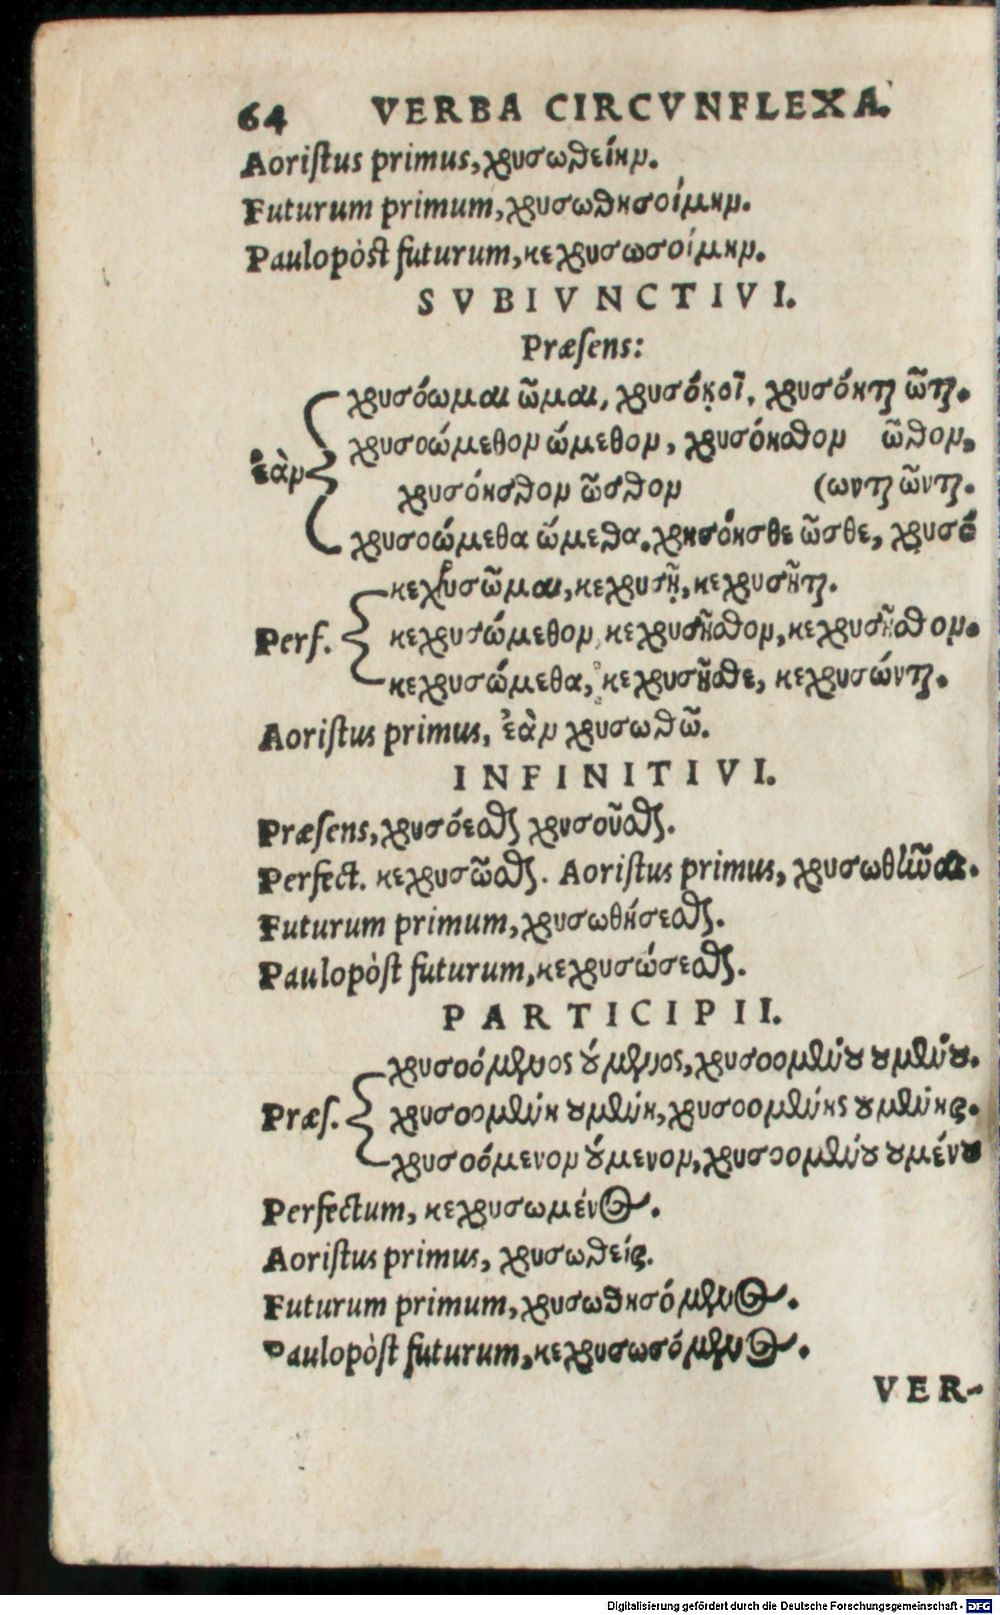 64 VERBA CIRCVNFLEXA.
Aoriſtus primus, χρυσωθείην.
Futurum primum, χρυσωθησοίμην.
Paulopòſt futurum, κεχρυσωσοίμην.
SVBIVNCTIVI.
Præſens:
χρυσόωμαι ῶμαι, χρυσόῃ οῖ, χρυσόηται ῶται.
ἐὰν χρυσοώμεθον ώμεθον, χρυσόησθον ῶσθον,
χρυσόησθον ῶσθον (ωνται ῶνται.
χρυσοώμεθα ώμεθα. χρησόησθε ῶσθε, χρυσό
κεχρυσῶμαι, κεχρυσῇ, κεχρυσῆται.
Perf. κεχρυσώμεθον, κεχρυσῆσθον, κεχρυσῆσθον.
κεχρυσώμεθα, κεχρυσῆσθε, κεχρυσώνται.
Aoriſtus primus, ἐὰν χρυσωθῶ.
INFINITIVI.
Præſens, χρυσόεσθαι χρυσοῦσθαι.
Perfect. κεχρυσῶσθαι. Aoriſtus primus, χρυσωθῆναι.
Futurum primum, χρυσωθήσεσθαι.
Paulopòſt futurum, κεχρυσώσεσθαι.
PARTICIPII.
χρυσοόμενος ούμενος, χρυσοομένου ουμένου.
Præſ. χρυσοομένη ουμένη, χρυσοομένης ουμένης.
χρυσοόμενον ούμενον, χρυσοομένου ουμένου
Perfectum, κεχρυσωμένος.
Aoriſtus primus, χρυσωθείς.
Futurum primum, χρυσωθησόμενος.
Paulopòſt futurum, κεχρυσωσόμενος.
VER-
Digitalisierung gefördert durch die Deutsche Forschungsgemeinschaft - DFG